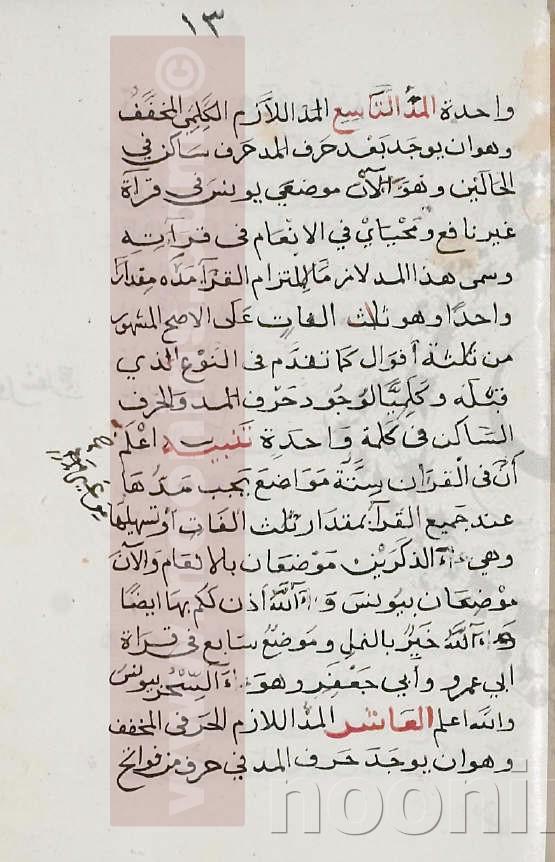 ١٣
واحدة المد التاسع المد اللازم الكلمي المخفف
وهو ان يوجد بعد حرف المد حرف ساكن في
الحالين وهو آلآن موضعي يونس في قرآة
غير نافع ومحياي في الانعام في قرآته
وسمى هذا المد لازما لالتزام القرآ مده مقدارا
واحدا وهو ثلث الفات على الاصح المشهور
من ثلثة أقوال كما تقدم في النوع الذي
قبله وكلميا لوجود حرف المد والحرف
الساكن في كلمة واحدة تنبيه اعلم
أن في القرآن ستة مواضع يجب مدها
عند جميع القرآ بمقدار ثلث الفات أو تسهيلها
وهي ءآلذكرين موضعان بالانعام وآلآن
موضعان بيونس و ءآلله أذن لكم بها ايضا
ءآلله خير بالنمل وموضع سابع في قراة
ابي عمرو وأبي جعفر وهو ءآلسحر بيونس
والله اعلم العاشر المد اللازم الحرفي المخفف
وهو ان يوجد حرف المد في حرف من فواتح
©
nooni